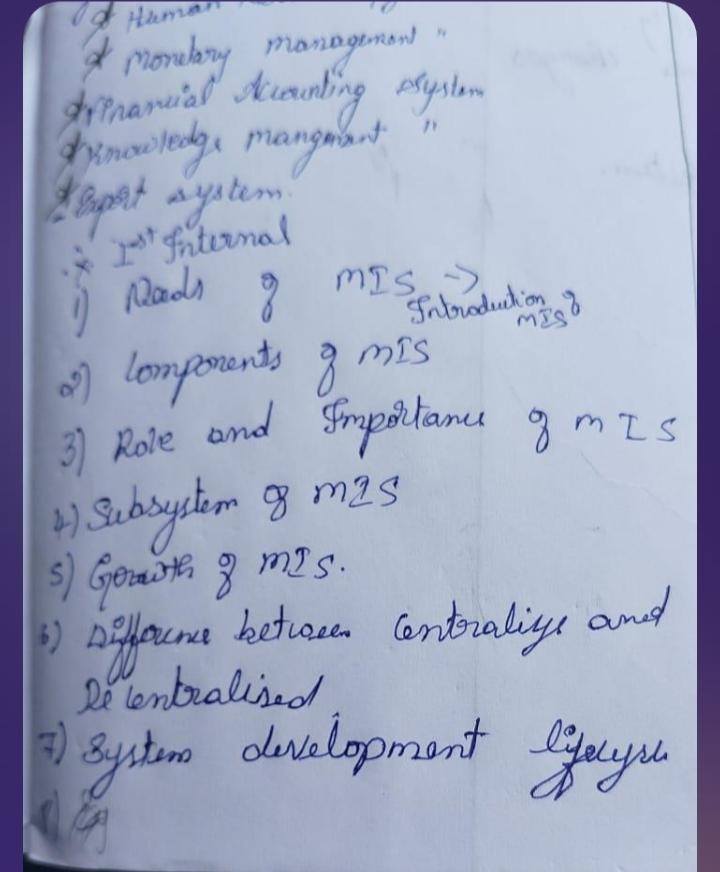 * Human
* Monetary management "
* Financial Accounting System
* Knowledge mangment "
* Expert system.
* Ist Internal
1) Needs of MIS → Introduction of MIS
2) Components of MIS
3) Role and Importance of MIS
4) Subsystem of MIS
5) Growth of MIS.
6) Difference between Centralize and
Decentralised
7) System development lifecycle
8)